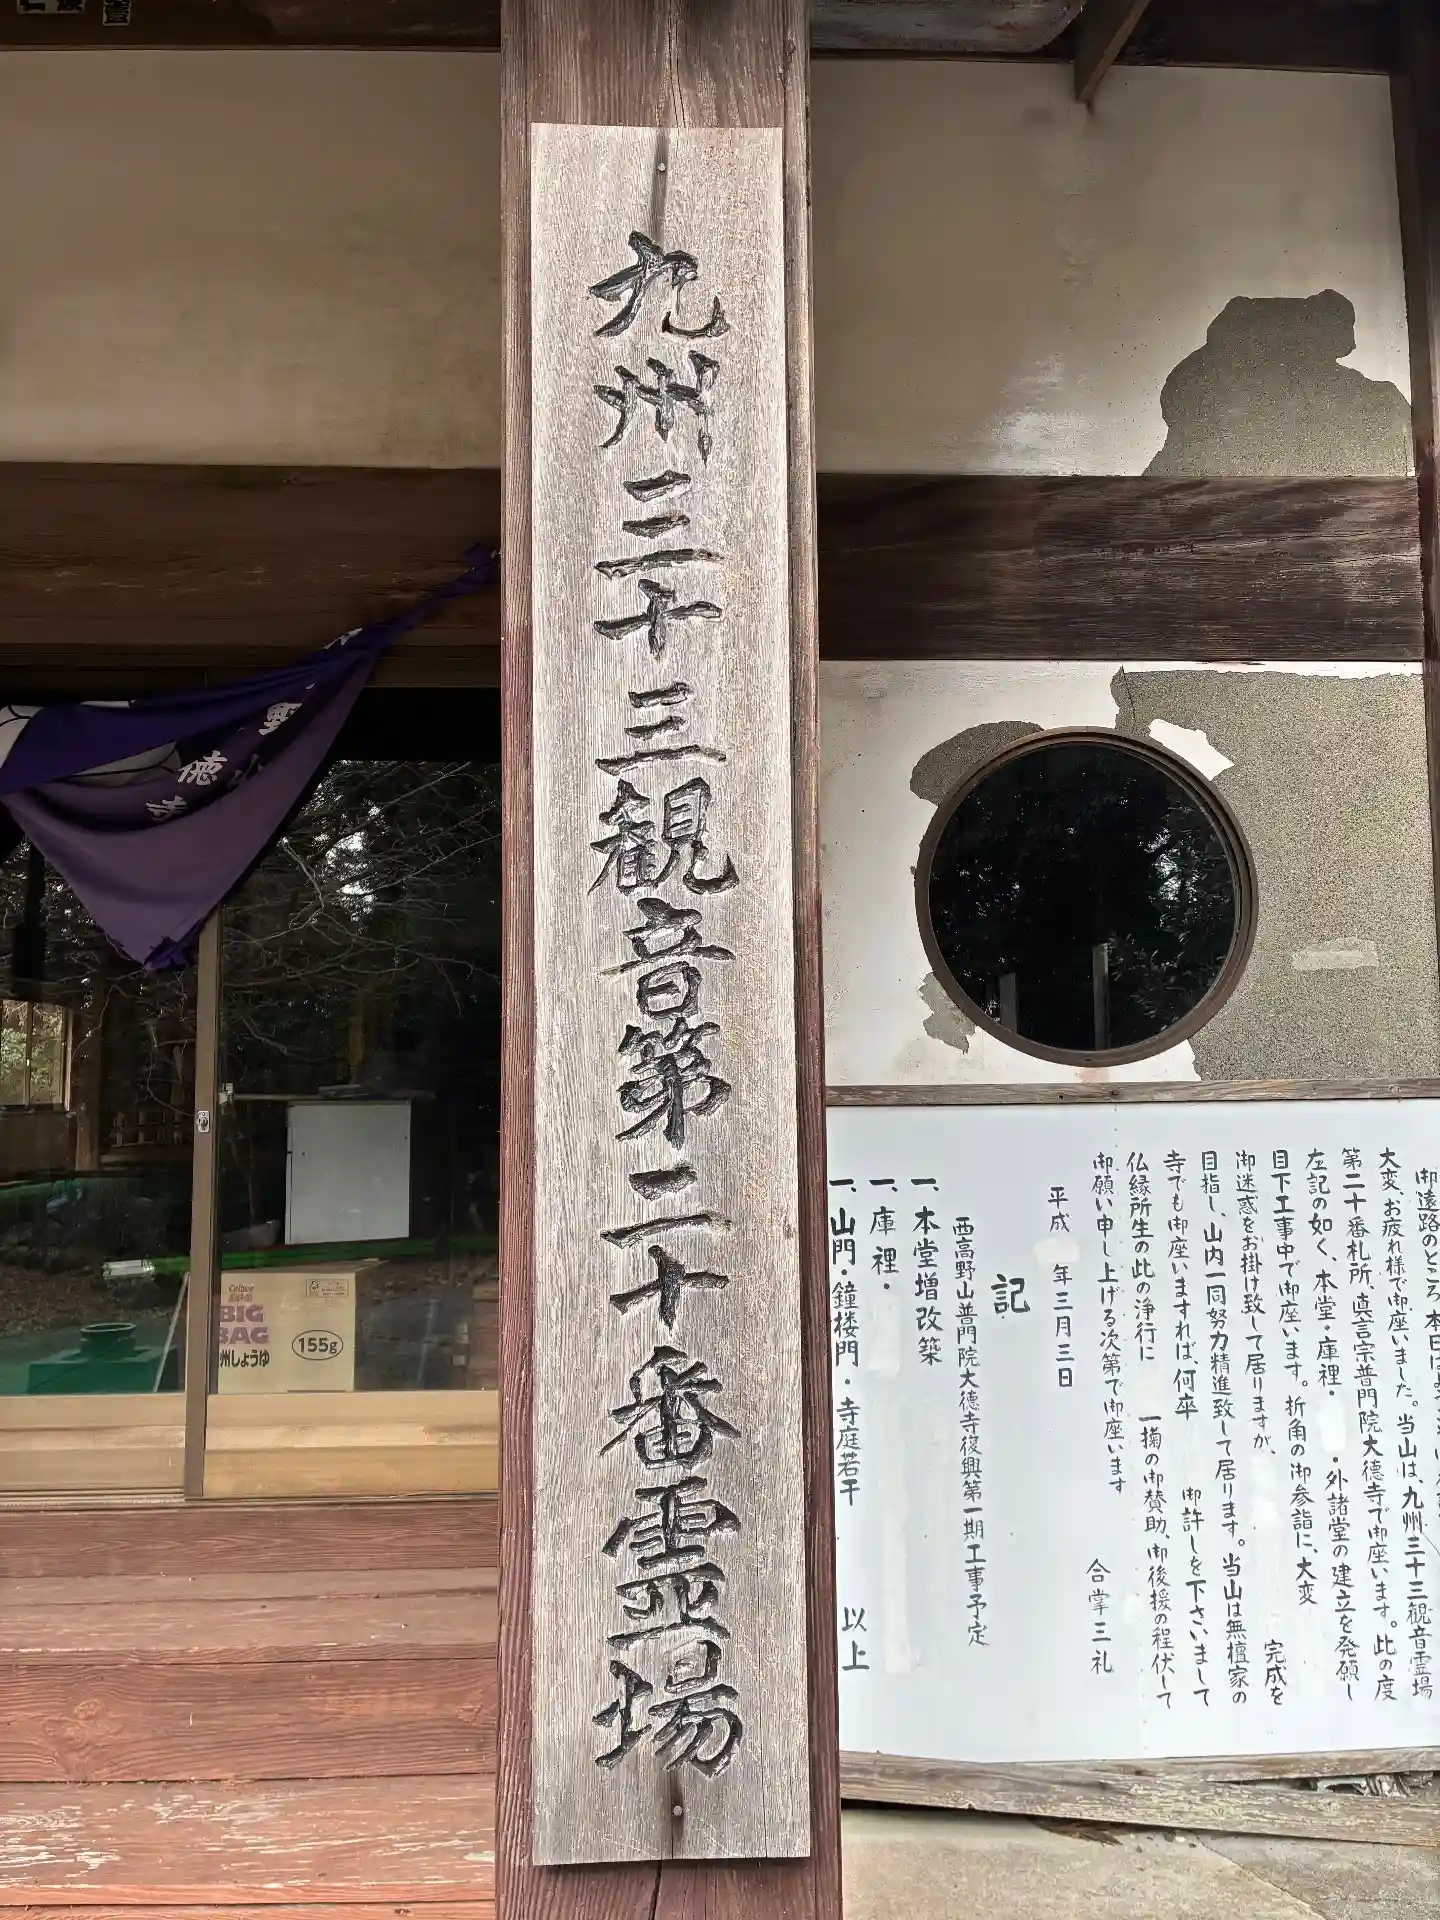 九州三十三観音第二十番霊場
御遠路のところ本日は
大変、お疲れ様で御座いました。当山は、九州三十三観音霊場
第二十番札所、真言宗普門院大徳寺で御座います。此の度
左記の如く、本堂・庫裡・・外諸堂の建立を発願し
目下工事中で御座います。折角の御参詣に、大変
御迷惑をお掛け致して居りますが、完成を
目指し、山内一同努力精進致して居ります。当山は無檀家の
寺でも御座いますれば、何卒 御許しを下さいまして
仏縁所生の此の浄行に 一掬の御賛助、御後援の程伏して
御願い申し上げる次第で御座います
合掌三礼
平成 年三月三日
記
西高野山普門院大徳寺復興第一期工事予定
一、本堂増改築
一、庫裡・
一、山門・鐘楼門・寺庭若干
以上
徳
Calbee
BIG
BAG
州しょうゆ
155g